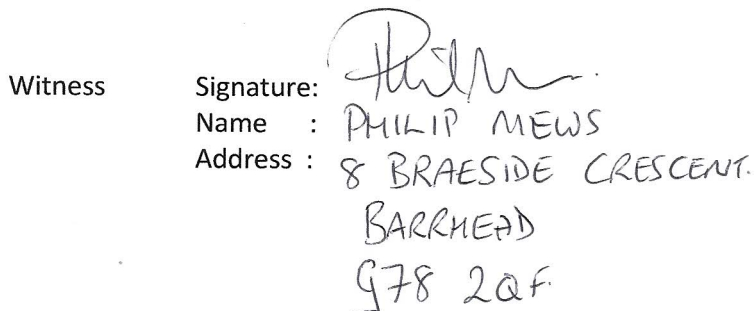 Witness Signature: Phil M
Name : PHILIP MEWS
Address : 8 BRAESIDE CRESCENT.
BARRHEAD
G78 2QF.